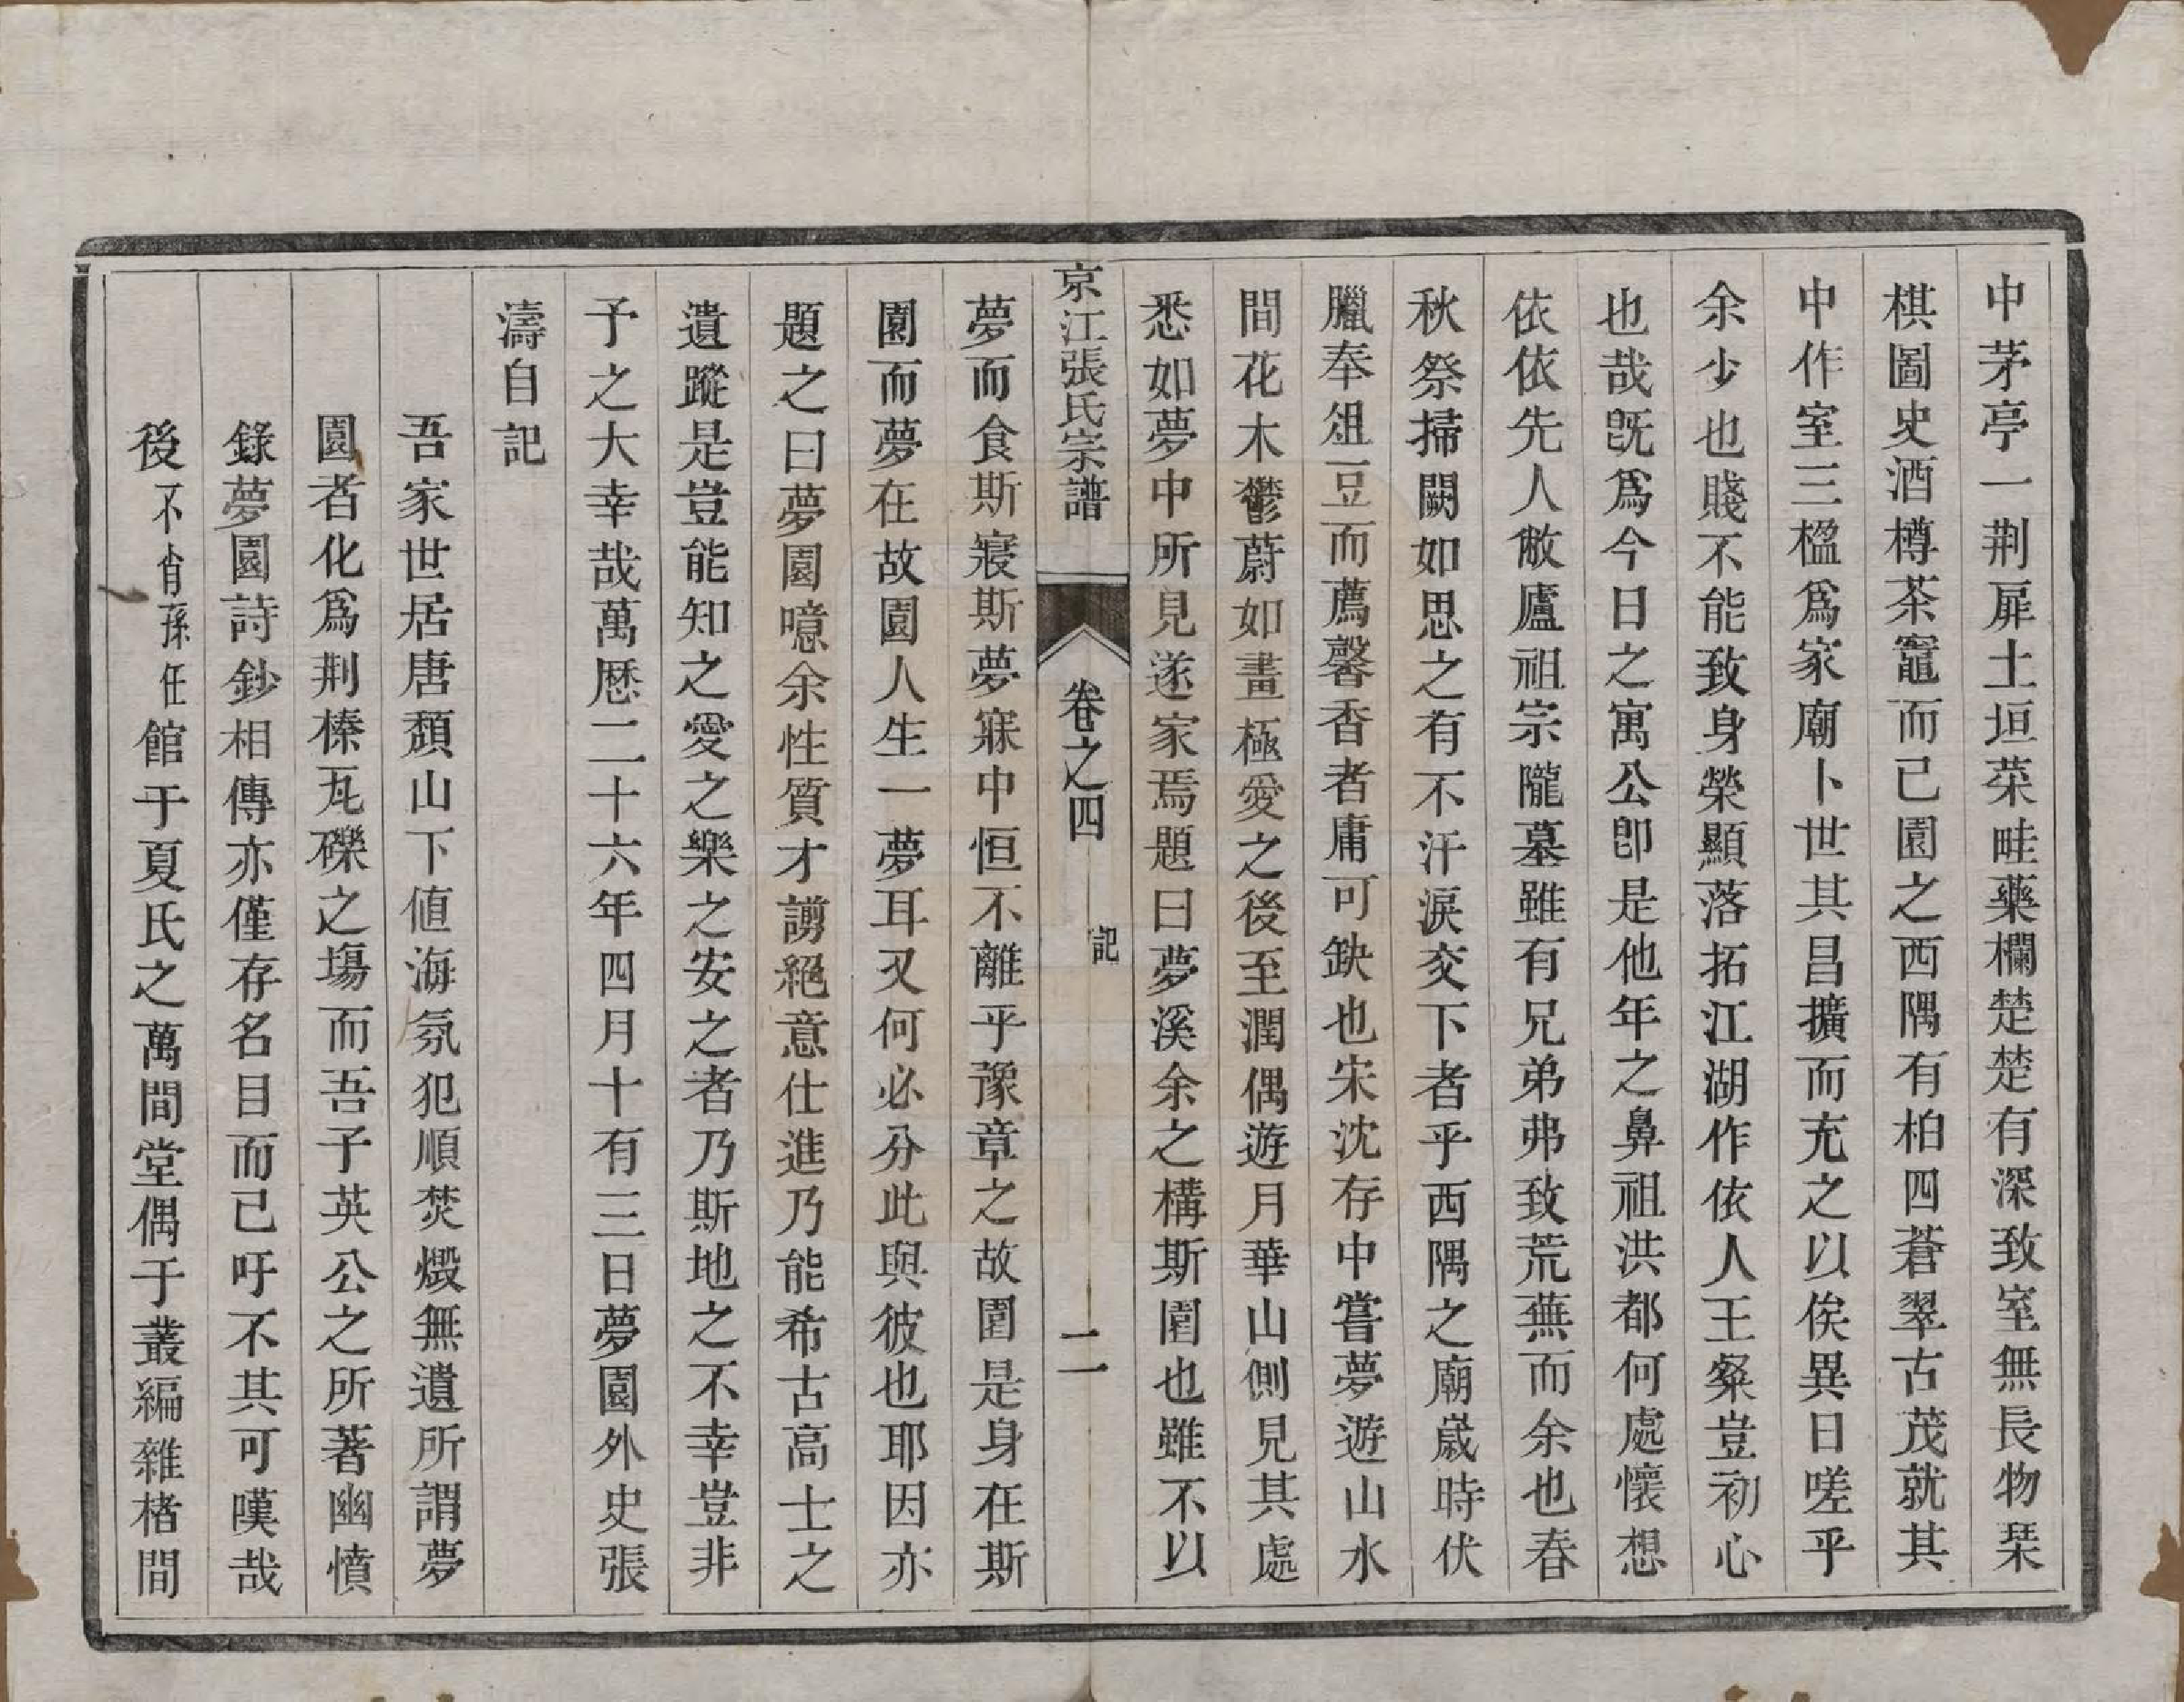 中茅亭一荆扉土垣菜畦藥欄楚楚有深致室無長物琹
棋圖史酒樽茶竈而已園之西隅有柏四蒼翠古茂就其
中作室三楹爲家廟卜世其昌擴而充之以俟異日嗟乎
余少也賤不能致身榮顯落拓江湖作依人王粲豈初心
也哉既爲今日之寓公卽是他年之鼻祖洪都何處懷想
依依先人敝廬祖宗隴墓雖有兄弟弗致荒蕪而余也春
秋祭掃闕如思之有不汗淚交下者乎西隅之廟嵗時伏
臘奉俎豆而薦馨香者庸可缺也宋沈存中嘗夢遊山水
間花木鬱蔚如畫極愛之後至潤偶遊月華山側見其處
悉如夢中所見遂家焉題曰夢溪余之構斯園也雖不以
京江張氏宗譜 卷之四 記 二
夢而食斯寢斯夢寐中恒不離乎豫章之故園是身在斯
園而夢在故園人生一夢耳又何必分此與彼也耶因亦
題之曰夢園噫余性質才謭絕意仕進乃能希古高士之
遺蹤是豈能知之愛之樂之安之者乃斯地之不幸豈非
予之大幸哉萬厯二十六年四月十有三日夢園外史張
濤自記
吾家世居唐頽山下値海氛犯順焚燬無遺所謂夢
園者化爲荆榛瓦礫之塲而吾子英公之所著幽憤
錄夢園詩鈔相傳亦僅存名目而已吁不其可嘆哉
後不肖孫任館于夏氏之萬間堂偶于叢編雜楮間